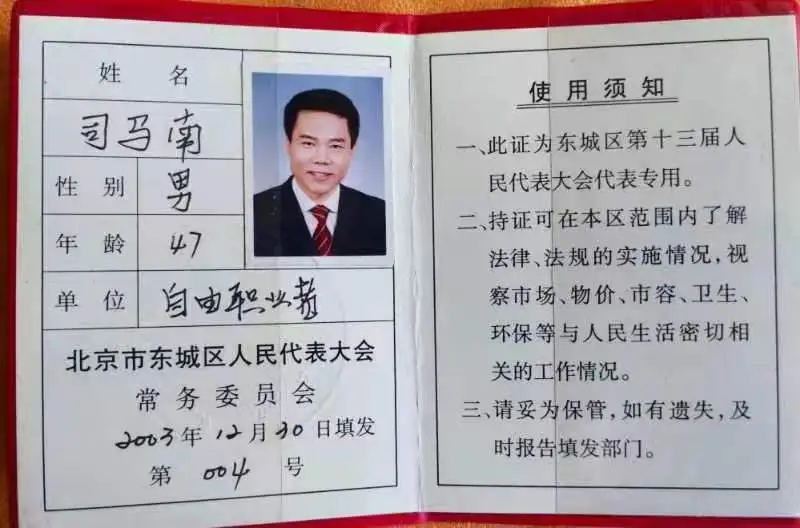 姓 名
司马南
性 别 男
年 龄 47
单 位 自由职业者
北京市东城区人民代表大会
常务委员会
2003年12月30日填发
第 004 号
使用须知
一、此证为东城区第十三届人
民代表大会代表专用。
二、持证可在本区范围内了解
法律、法规的实施情况,视
察市场、物价、市容、卫生、
环保等与人民生活密切相
关的工作情况。
三、请妥为保管,如有遗失,及
时报告填发部门。